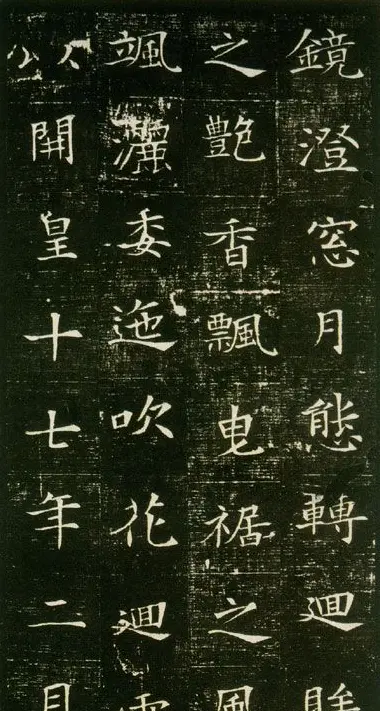 鏡澄窓月態轉廻眸
之艶香飄曳裾之風
颯灑委迤吹花廻雪
以開皇十七年二月